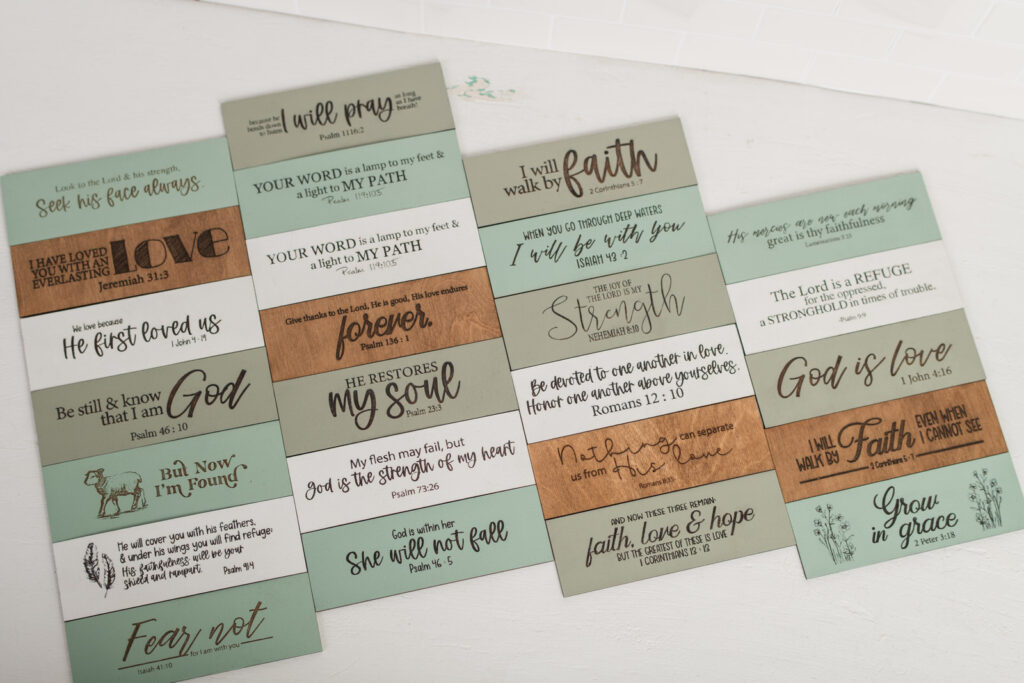 Look to the Lord & his strength,
Seek his face always.
I HAVE LOVED
YOU WITH AN
EVERLASTING
LOVE
Jeremiah 31:3
We love because
He first loved us
1 John 4 : 19
Be still & know
that I am
God
Psalm 46 : 10
But Now
I'm Found
He will cover you with his feathers,
& under his wings you will find refuge;
His faithfulness will be your
shield and rampart.
Psalm 91:4
Fear not
for I am with you
Isaiah 41:10
because he
bends down
to listen
I will pray
as long
as I have
breath!
Psalm 1116:2
YOUR WORD is a lamp to my feet &
a light to MY PATH
Psalm 119:105
YOUR WORD is a lamp to my feet &
a light to MY PATH
Psalm 119:105
Give thanks to the Lord, He is good, His love endures
forever.
Psalm 136 : 1
HE RESTORES
my soul
Psalm 23:3
My flesh may fail, but
God is the strength of my heart
Psalm 73:26
God is within her
She will not fall
Psalm 46 : 5
I will
walk by
faith
2 Corinthians 5 : 7
WHEN YOU GO THROUGH DEEP WATERS
I will be with you
ISAIAH 43 :2
THE JOY OF
THE LORD IS MY
Strength
NEHEMIAH 8:10
Be devoted to one another in love.
Honor one another above yourselves.
Romans 12 : 10
Nothing can separate
us from His love
Romans 8:35
AND NOW THESE THREE REMAIN:
faith, love & hope
BUT THE GREATEST OF THESE IS LOVE
1 CORINTHIANS 13 : 13
His mercies are new each morning
great is thy faithfulness
Lamentations 3:23
The Lord is a REFUGE
for the oppressed,
a STRONGHOLD in times of trouble.
-Psalm 9:9
God is love
1 John 4:16
I WILL
WALK BY
Faith
EVEN WHEN
I CANNOT SEE
2 Corinthians 5 : 7
Grow
in grace
2 Peter 3:18